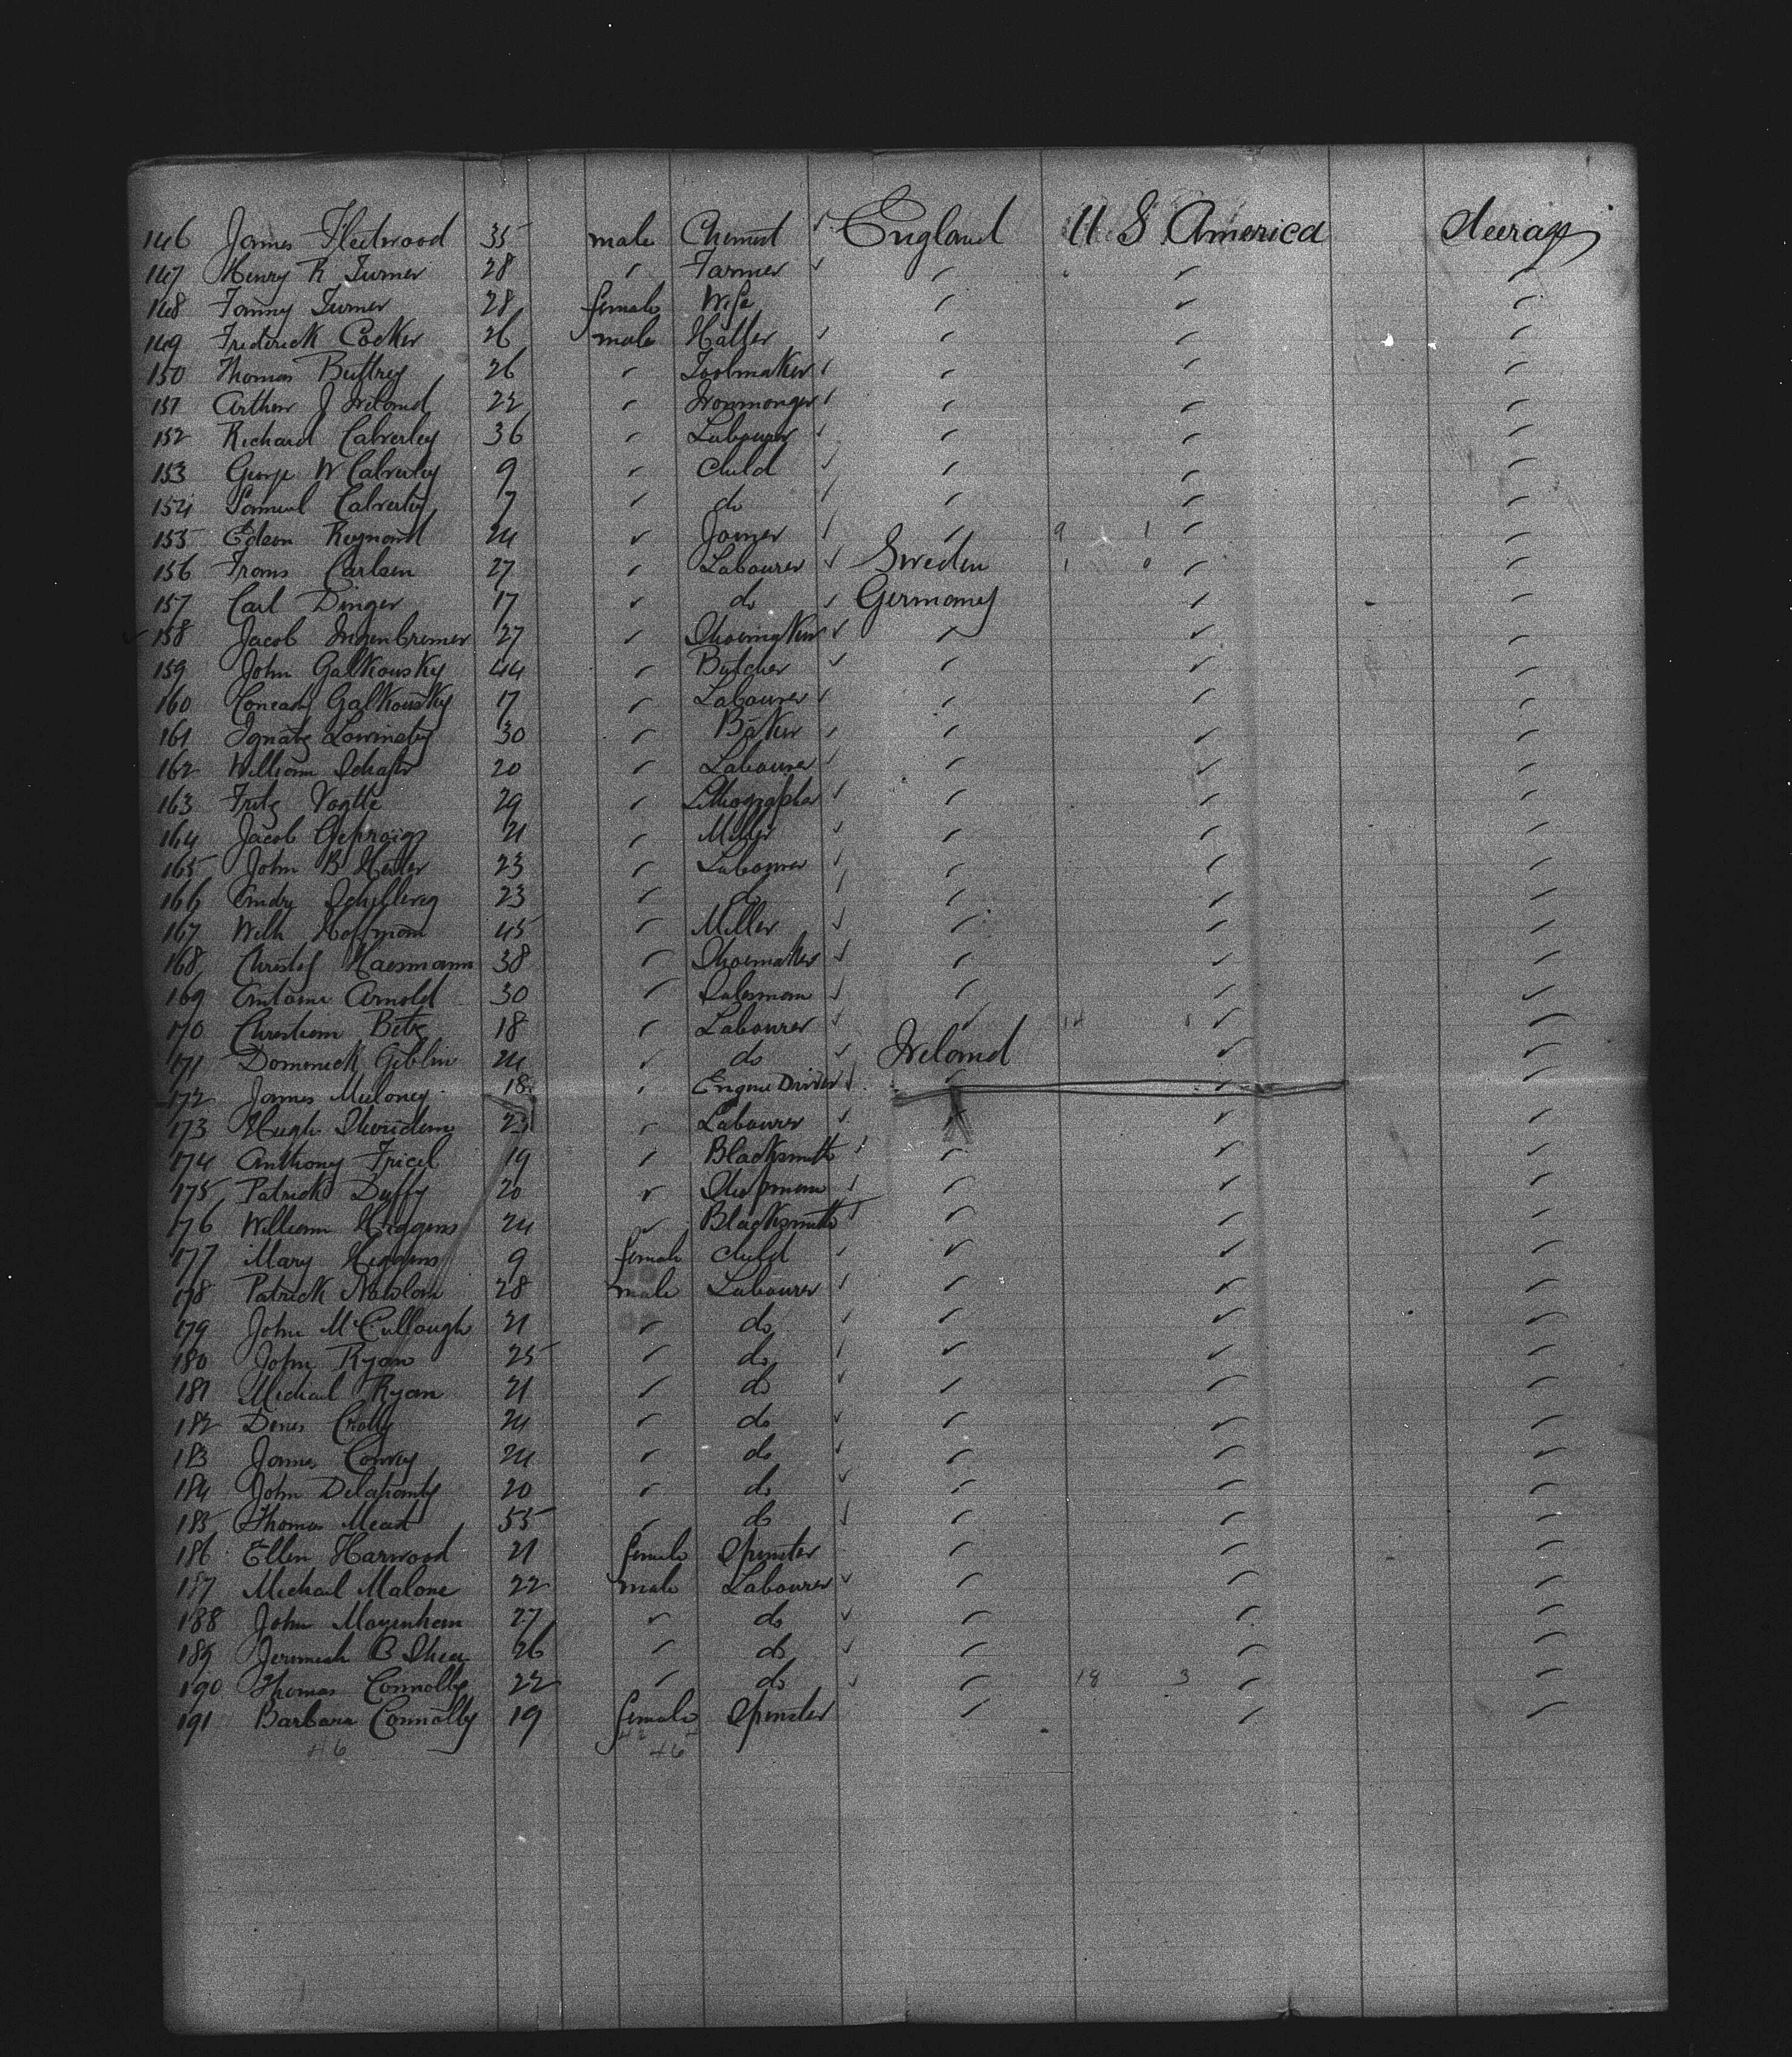 146 James Fleetwood 35 male Chemist ✓ England U S America Steerage
147 Henry R Turner 28 " Farmer ✓ " " "
148 Fanny Turner 28 female Wife " " "
149 Frederick Cocker 26 male Hatter ✓ " " "
150 Thomas Buttrey 26 " Toolmaker ✓ " " "
151 Arthur J Ireland 22 " Ironmonger ✓ " " "
152 Richard Calverley 36 " Labourer ✓ " " "
153 George W Calverley 9 " Child ✓ " " "
154 Samuel Calverley 7 " do ✓ " " "
155 Edson Reynard 24 " Joiner ✓ " 9 1 " "
156 Frans Carlsen 27 " Labourer ✓ Sweden 1 0 " "
157 Carl Dinger 17 " do ✓ Germany " "
158 Jacob 27 " Shoemaker ✓ " " "
159 John Galkousky 44 " Butcher ✓ " " "
160 Galkousky 17 " Labourer ✓ " " "
161 Ignatz 30 " Baker ✓ " " "
162 William Schafer 20 " Labourer ✓ " " "
163 Fritz Vogtte 29 " Lithographer ✓ " " "
164 Jacob 21 " Miller ✓ " " "
165 John B 23 " Labourer ✓ " " "
166 23 " do ✓ " " "
167 Wilh Hoffmann 45 " Miller ✓ " " "
168 Christof Haesmann 38 " Shoemaker ✓ " " "
169 Antoine Arnold 30 " Salesman ✓ " " "
170 Christian Betz 18 " Labourer ✓ " 14 " "
171 Domenick Giblin 24 " do ✓ Ireland " "
172 James Muloney 18 " Engine Driver ✓ " " "
173 Hugh Sheridan 23 " Labourer ✓ " " "
174 Anthony Fricel 19 " Blacksmith ✓ " " "
175 Patrick Duffy 20 " Shopman ✓ " " "
176 William Higgins 24 " Blacksmith ✓ " " "
177 Mary Higgins 9 female Child ✓ " " "
178 Patrick Nawlon 28 male Labourer ✓ " " "
179 John McCullough 21 " do ✓ " " "
180 John Ryan 25 " do ✓ " " "
181 Michael Ryan 21 " do ✓ " " "
182 Denis Crolly 24 " do ✓ " " "
183 James Conroy 24 " do ✓ " " "
184 John Delahanty 20 " do ✓ " " "
185 Thomas Mead 55 " do ✓ " " "
186 Ellen Harwood 21 female Spinster " " "
187 Michael Malone 22 male Labourer ✓ " " "
188 John 27 " do ✓ " " "
189 Jeremiah O Shea 26 " do ✓ " " "
190 Thomas Connolly 22 " do ✓ " 18 3 " "
191 Barbara Connolly 19 female Spinster " " "
46 42 46